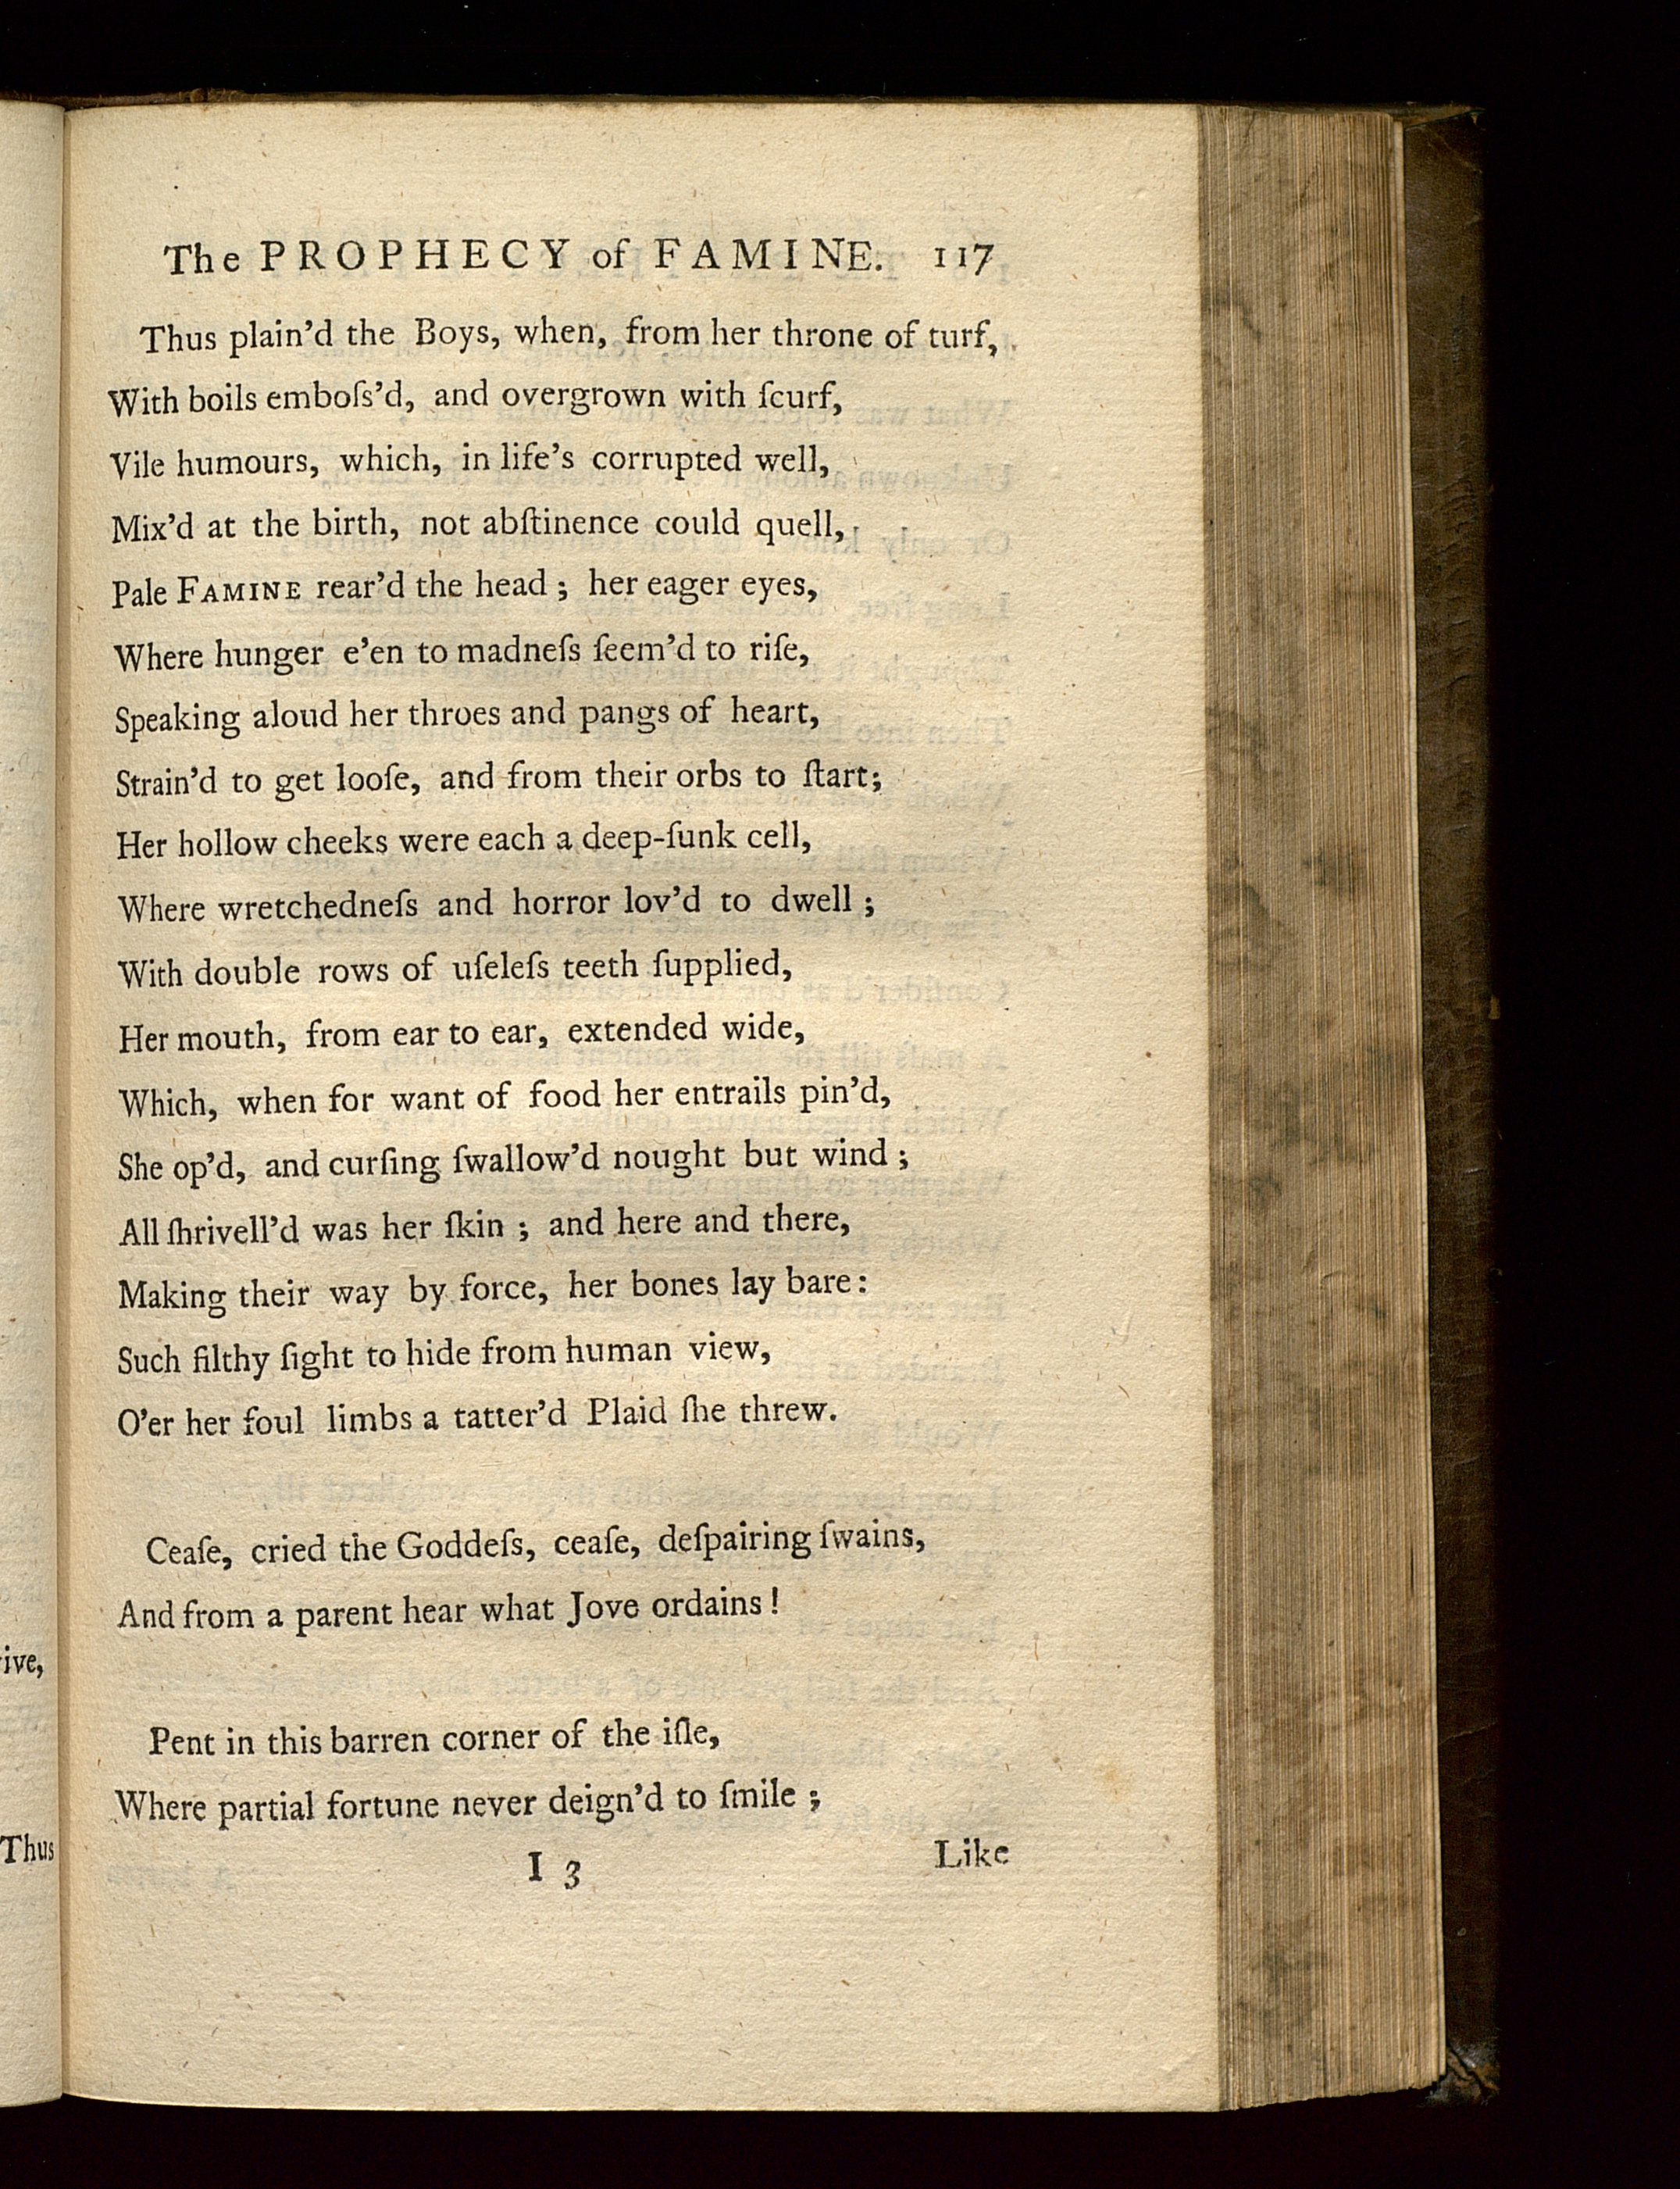 The PROPHECY of FAMINE. 117
Thus plain'd the Boys, when, from her throne of turf,
With boils emboſs'd, and overgrown with ſcurf,
Vile humours, which, in life's corrupted well,
Mix'd at the birth, not abſtinence could quell,
Pale FAMINE rear'd the head ; her eager eyes,
Where hunger e'en to madneſs ſeem'd to riſe,
Speaking aloud her throes and pangs of heart,
Strain'd to get looſe, and from their orbs to ſtart;
Her hollow cheeks were each a deep-ſunk cell,
Where wretchedneſs and horror lov'd to dwell ;
With double rows of uſeleſs teeth ſupplied,
Her mouth, from ear to ear, extended wide,
Which, when for want of food her entrails pin'd,
She op'd, and curſing ſwallow'd nought but wind ;
All ſhrivell'd was her ſkin ; and here and there,
Making their way by force, her bones lay bare:
Such filthy ſight to hide from human view,
O'er her foul limbs a tatter'd Plaid ſhe threw.
Ceaſe, cried the Goddeſs, ceaſe, deſpairing ſwains,
And from a parent hear what Jove ordains !
Pent in this barren corner of the iſle,
Where partial fortune never deign'd to ſmile ;
I 3 Like
ive,
Thus